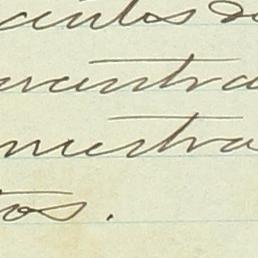 antes de
ncuentra
nuestra
tos.